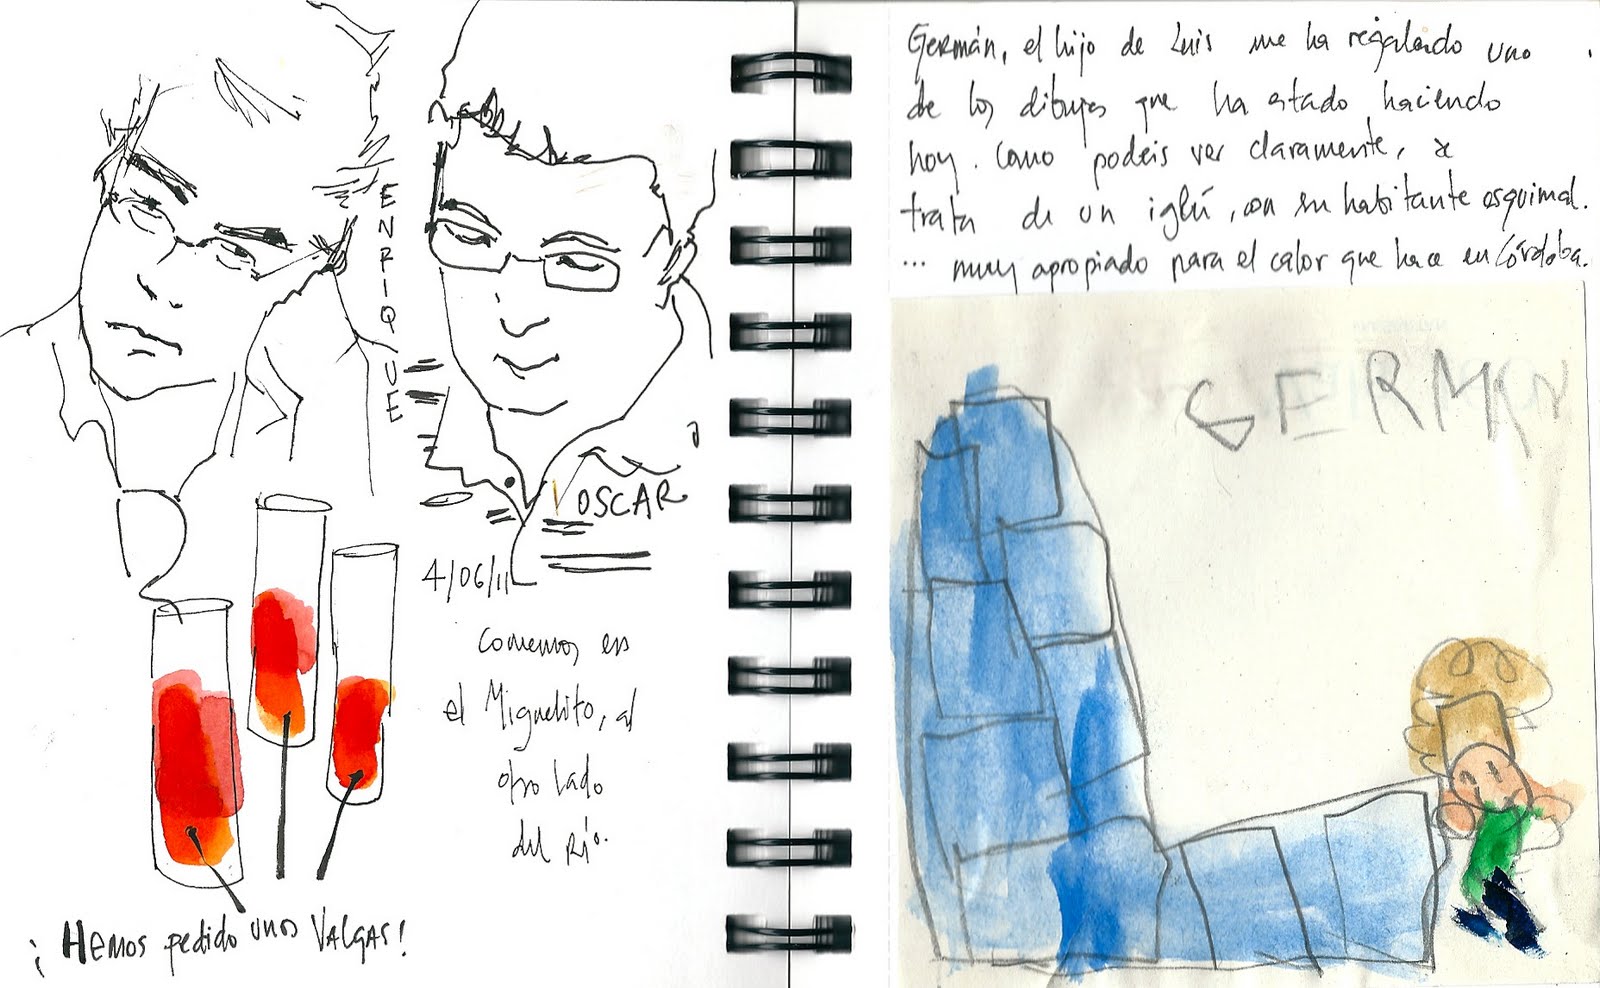 ENRIQUE
OSCAR
4/06/11
Comemos en
el Miguelito, al
otro lado
del Río.
¡Hemos pedido unos VALGAS!
Germán, el hijo de Luis me ha regalado uno
de los dibujos que ha estado haciendo
hoy. Como podéis ver claramente, se
trata de un iglú, con su habitante esquimal.
... muy apropiado para el calor que hace en Córdoba.
GERMAN